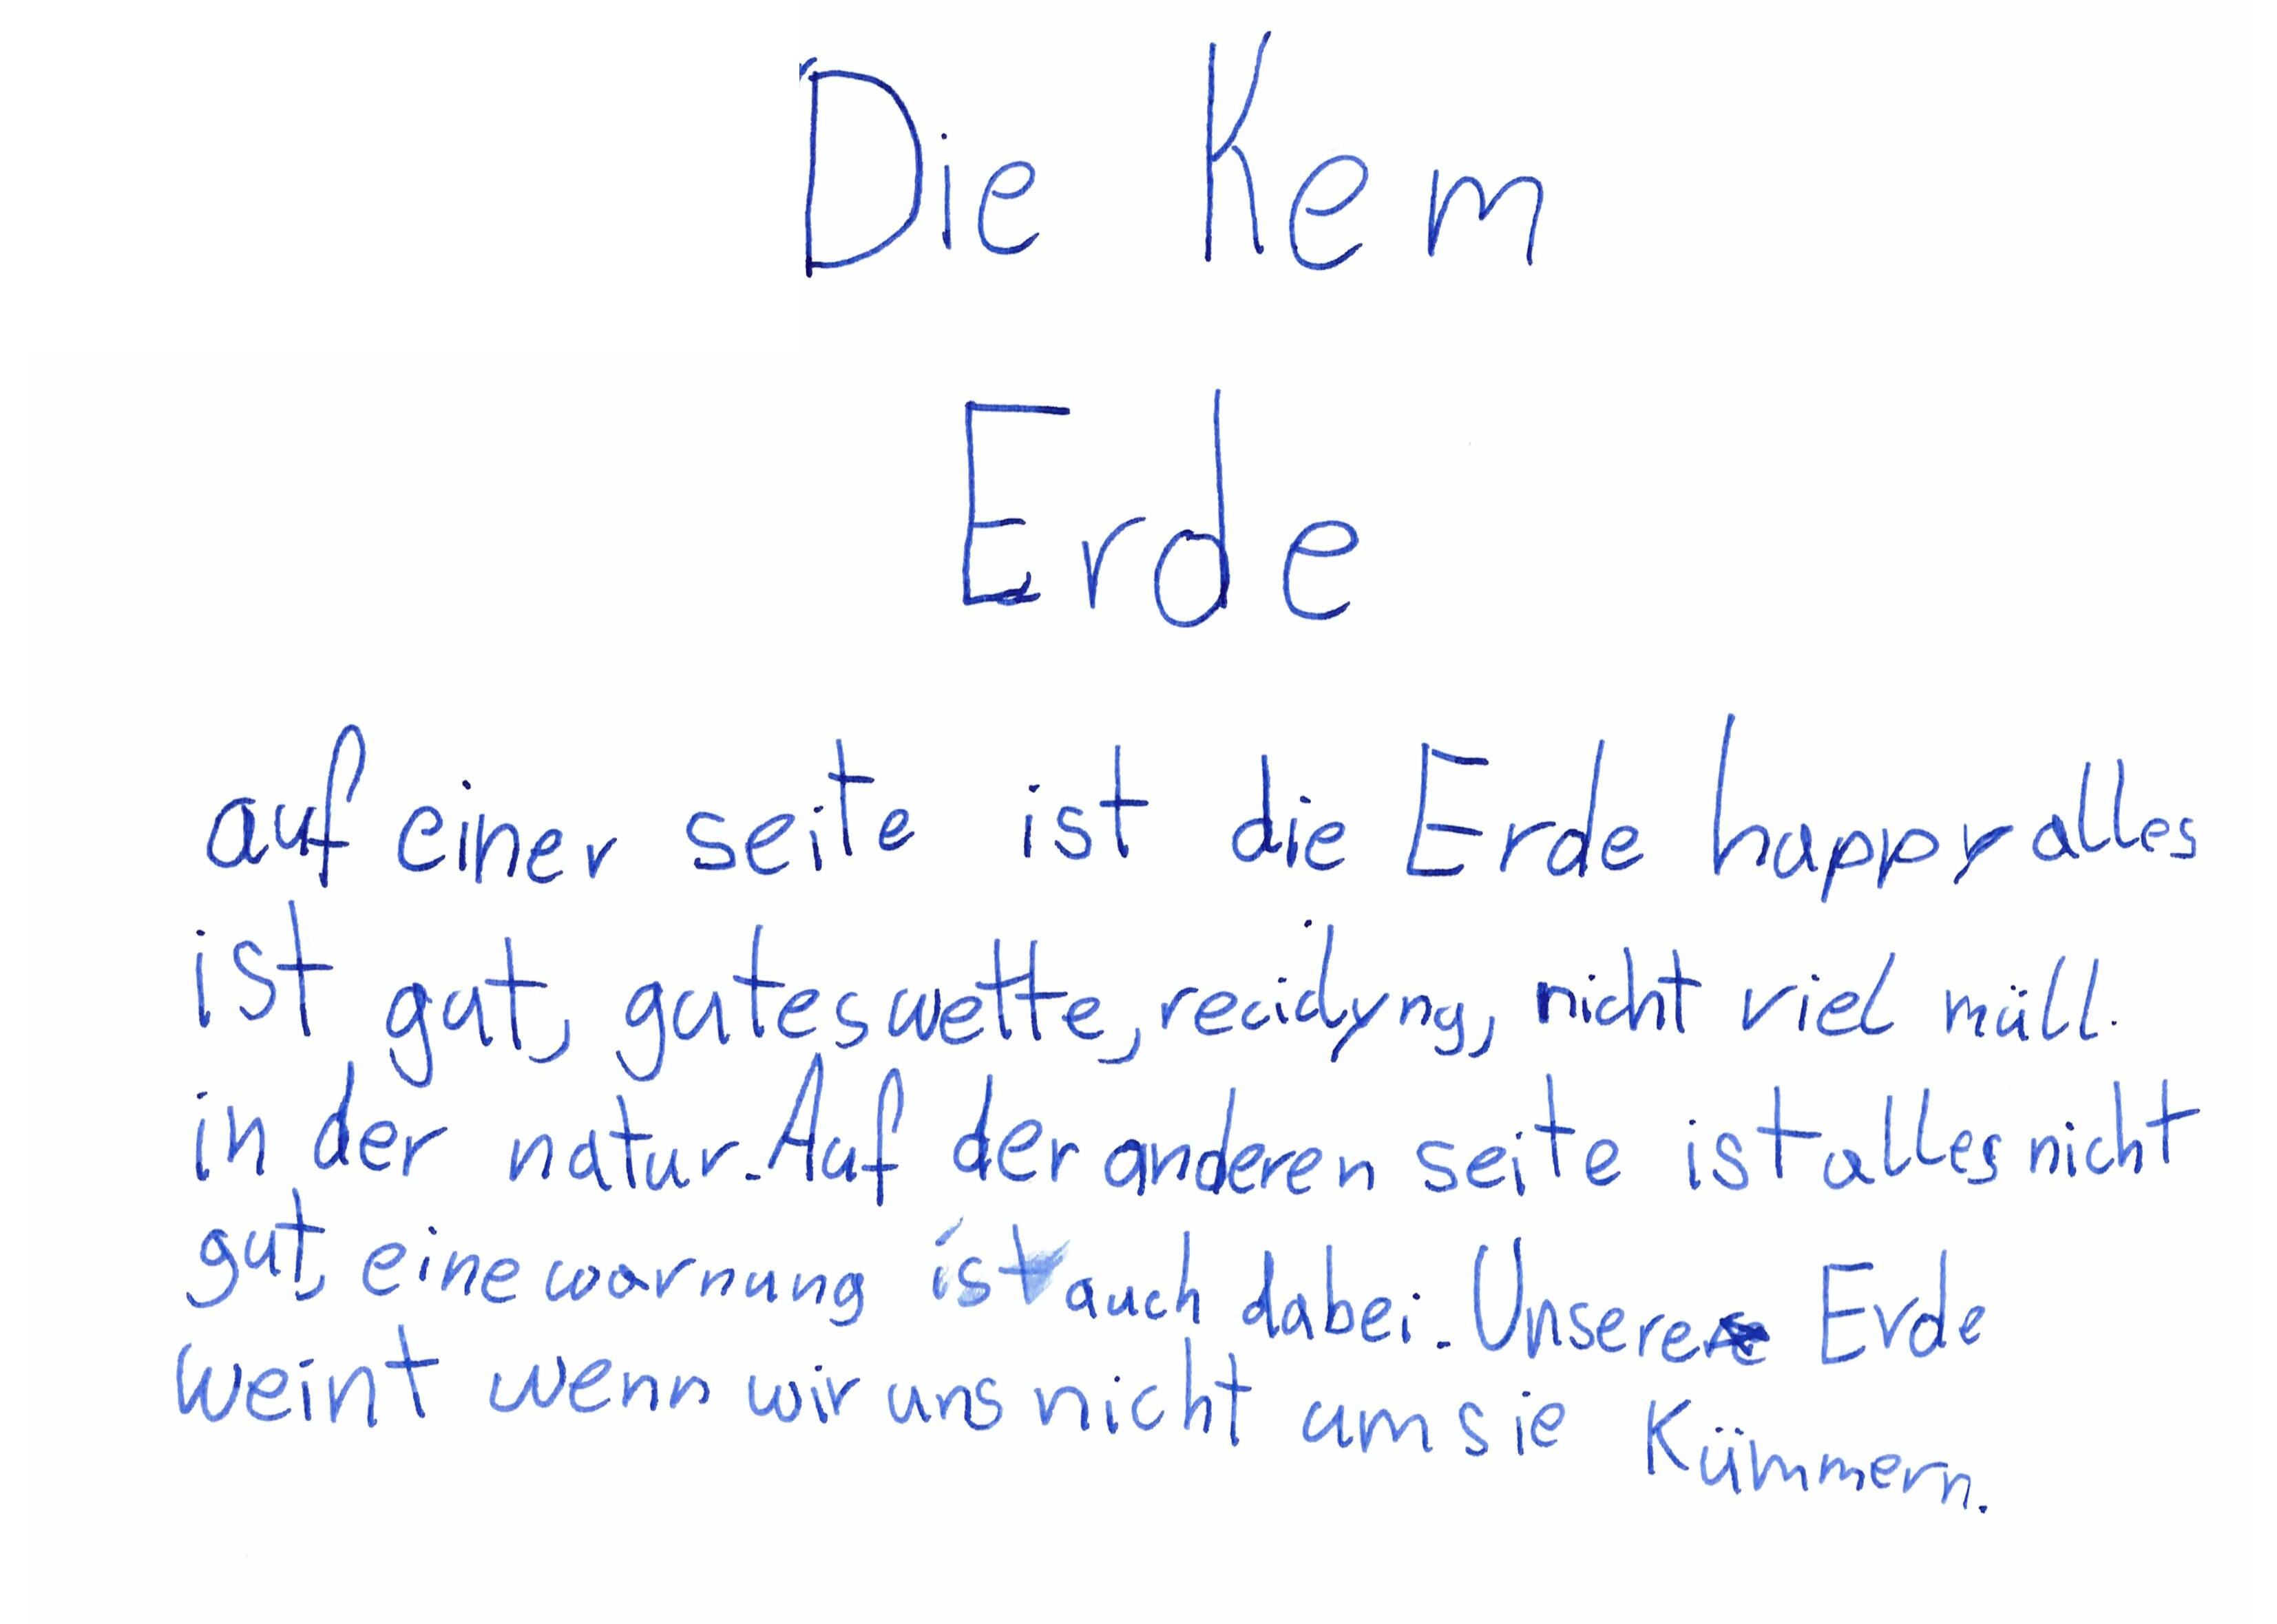 Die Kem
Erde
auf einer seite ist die Erde happy alles
ist gut, gutes wette, recidyng, nicht viel müll.
in der natur. Auf der anderen seite ist alles nicht
gut, eine warnung ist auch dabei. Unsere Erde
weint wenn wir uns nicht um sie Kümmern.